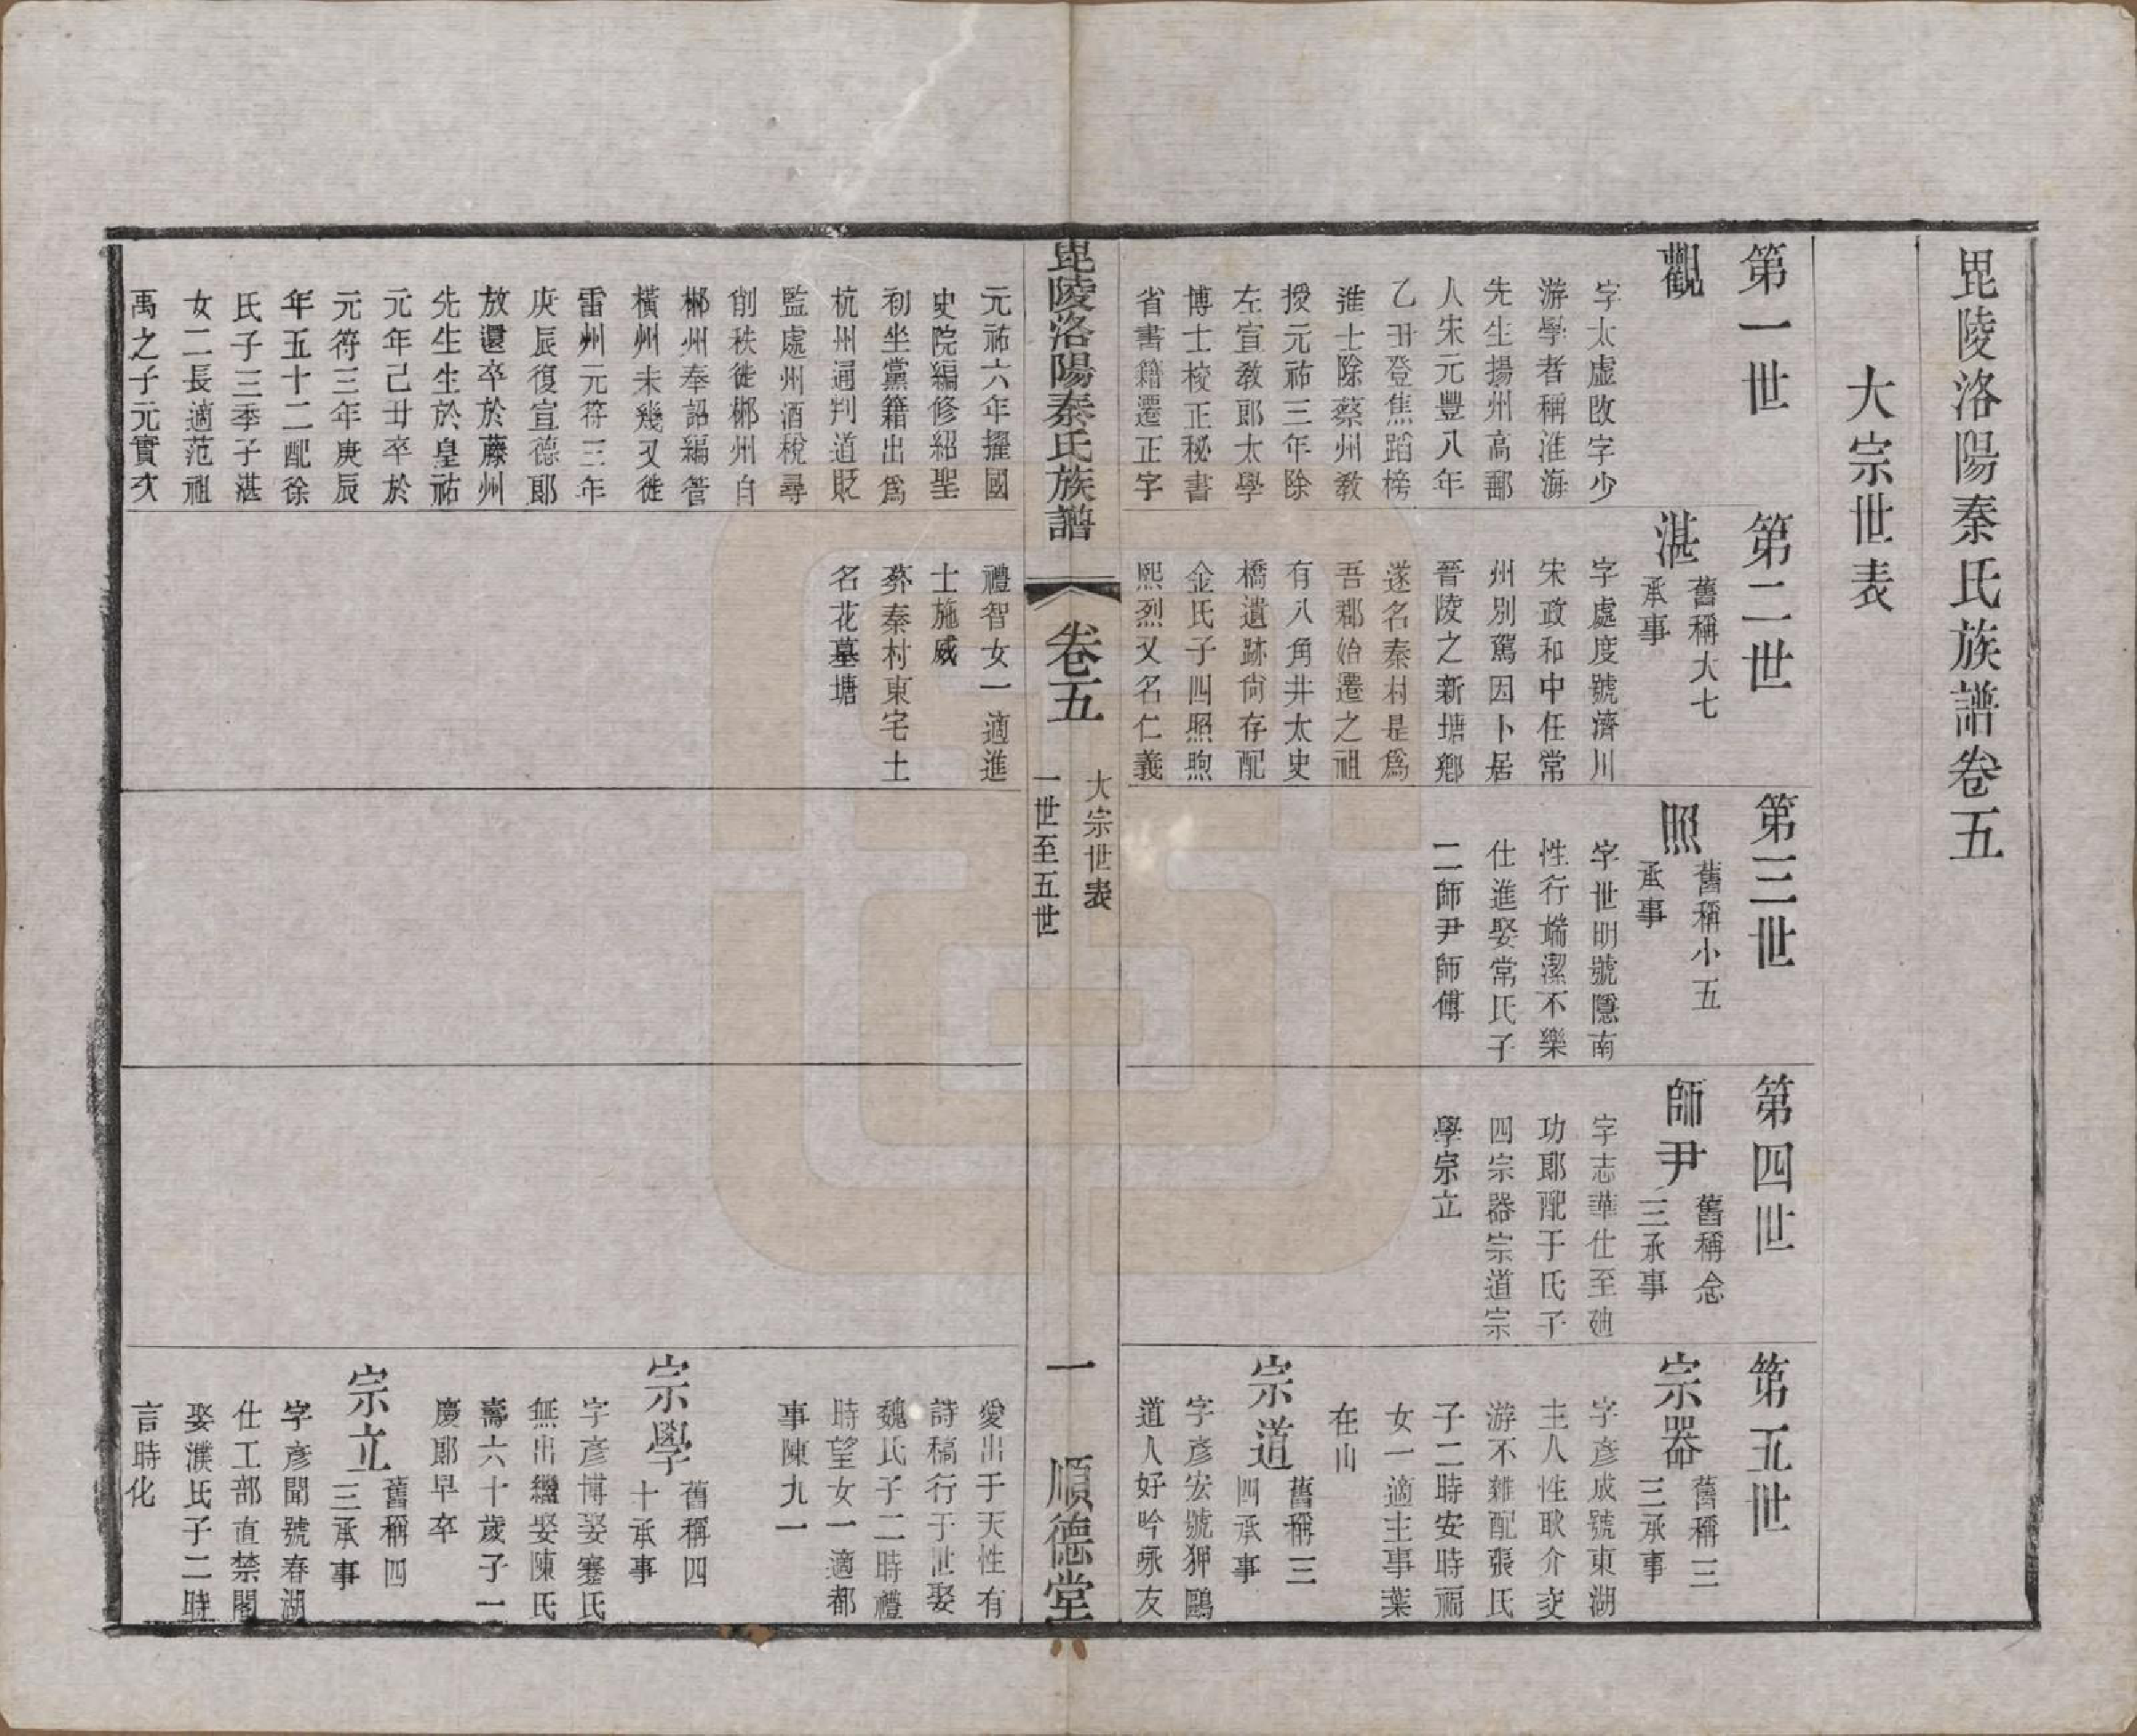 毘陵洛陽秦氏族譜卷五
大宗世表
第一世
觀
字太虛改字少
游學者稱淮海
先生揚州高郵
人宋元豐八年
乙丑登焦蹈榜
進士除蔡州教
授元祐三年除
左宣教郎太學
博士校正秘書
省書籍遷正字
元祐六年擢國
史院編修紹聖
初坐黨籍出爲
杭州通判道貶
監處州酒稅尋
削秩徙郴州自
郴州奉詔編管
橫州未幾又徙
雷州元符三年
庚辰復宣德郎
放還卒於藤州
先生生於皇祐
元年己丑卒於
元符三年庚辰
年五十二配徐
氏子三季子湛
女二長適范祖
禹之子元實次
第二世
湛
舊稱大七
承事
字處度號濟川
宋政和中任常
州別駕因卜居
晉陵之新塘鄉
遂名秦村是爲
吾郡始遷之祖
有八角井太史
橋遺跡尙存配
金氏子四照煦
熙烈又名仁義
禮智女一適進
士施威
葬秦村東宅土
名花墓塘
第三世
照
舊稱小五
承事
字世明號隱南
性行端潔不樂
仕進娶常氏子
二師尹師傅
第四世
師尹
舊稱念
三承事
字志華仕至廸
功郎配于氏子
四宗器宗道宗
學宗立
第五世
宗器
舊稱三
三承事
字彥成號東湖
主人性耿介交
游不雜配張氏
子二時安時福
女一適主事葉
在山
宗道
舊稱三
四承事
字彥宏號狎鷗
道人好吟咏友
愛出于天性有
詩稿行于世娶
魏氏子二時禮
時望女一適都
事陳九一
宗學
舊稱四
十承事
字彥博娶蹇氏
無出繼娶陳氏
壽六十歲子一
慶郎早卒
宗立
舊稱四
三承事
字彥聞號春湖
仕工部直禁閣
娶濮氏子二時
言時化
毘陵洛陽秦氏族譜
卷五
大宗世表
一世至五世
一
順德堂